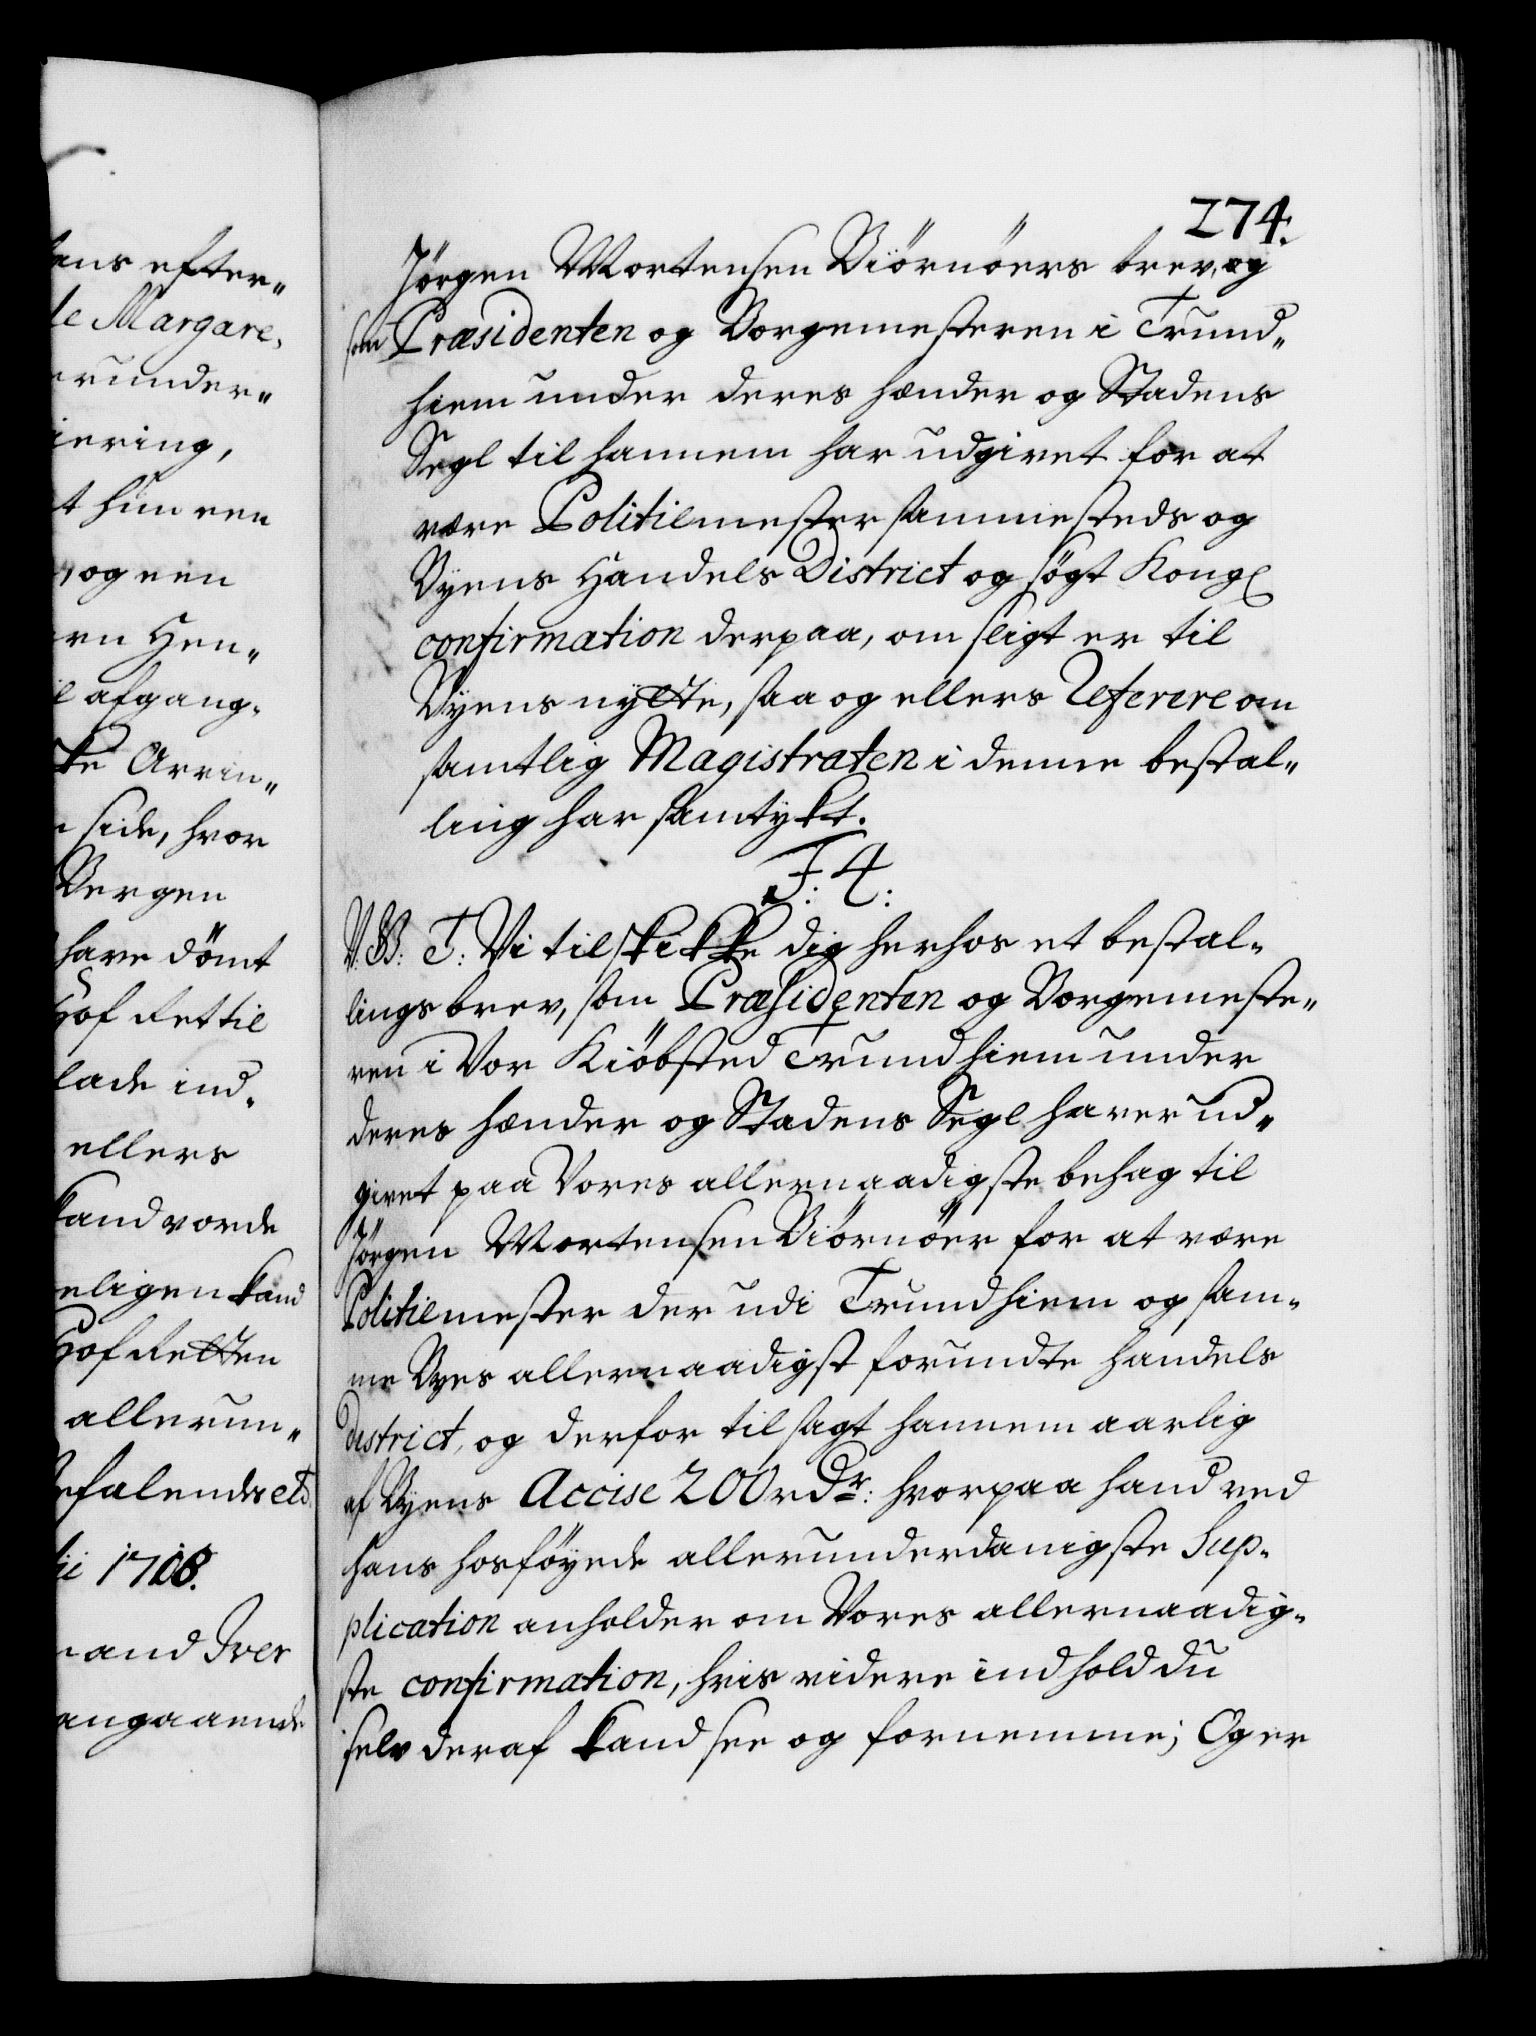 ens efter"
de Margare,
erunder"
iering,
t hun een
, og een
ern Hen"
l afgang,
ke Arvin"
n side, hvor
Bergen
have dömt
Hof Ret til
lade ind,
ellers
kand vorde
eligen kand
Hof Retten
allerun"
Befalendes etc
ii 1708.
mand Iver
angaaende
274.
Jörgen Mortensen Biörnöers brev, og
som Præsidenten og Borgemesteren i Trund"
hiem under deres hænder og Stadens
Segl til hannem har udgivet for at
være Politiemester sammesteds og
Byens Handels District og sögt Kongl
confirmation derpaa, om sligt er til
Byens nytte, saa og ellers Referere om
samtlig Magistraten i denne bestal"
ling har samtykt.
F: 4:
V. G: T: Vi tilskikke dig herhos et bestal"
lings brev, som Præsidenten og Borgemeste"
ren i Vor Kiöbsted Trundhiem under
deres hænder og Stadens Segl haver ud"
givet paa Vores allernaadigste behag til
Jörgen Mortensen Biörnöer for at være
Politiemester der udi Trundhiem og sam"
me Byes allernaadigst forundte Handels
District, og derfor tilsagt hannem aarlig
af Byens Accise 200 rdr: hvorpaa hand ved
hans hosföyede allerunderdanigste Sup"
plication anholder om Vores allernaadig"
ste confirmation, hvis videre indhold du
selv deraf kand see og fornemme; Og er